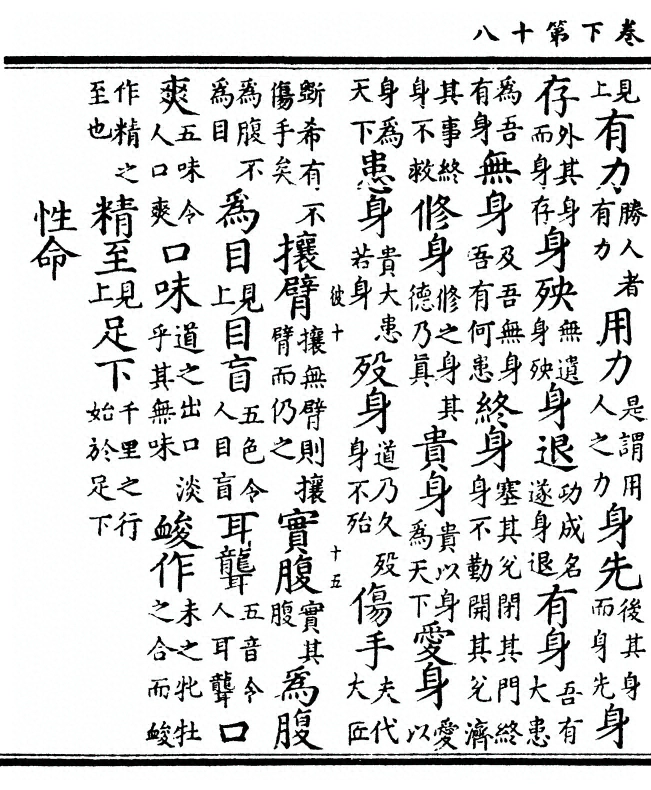 卷下第十八
見上有力勝人者有力用力是謂用人之力身先後其身而身先身
存外其身而身存身殃無遺身殃身退功成名遂身退有身吾有大患
為吾有身無身及吾無身吾有何患終身塞其兌閉其門終身不勤開其兌濟
其事終身不救修身修之身其德乃真貴身貴以身為天下愛身愛以
身為天下患身貴大患若身歿身道乃久歿身不殆傷手夫代大匠
彼十 十五
斲希有不傷手矣攘臂攘無臂則攘臂而仍之實腹實其腹為腹
為腹不為目為目見上目盲五色令人目盲耳聾五音令人耳聾口
爽五味令人口爽口味道之出口淡乎其無味峻作未之牝牡之合而峻
作精之至也精至見上足下千里之行始於足下
性命